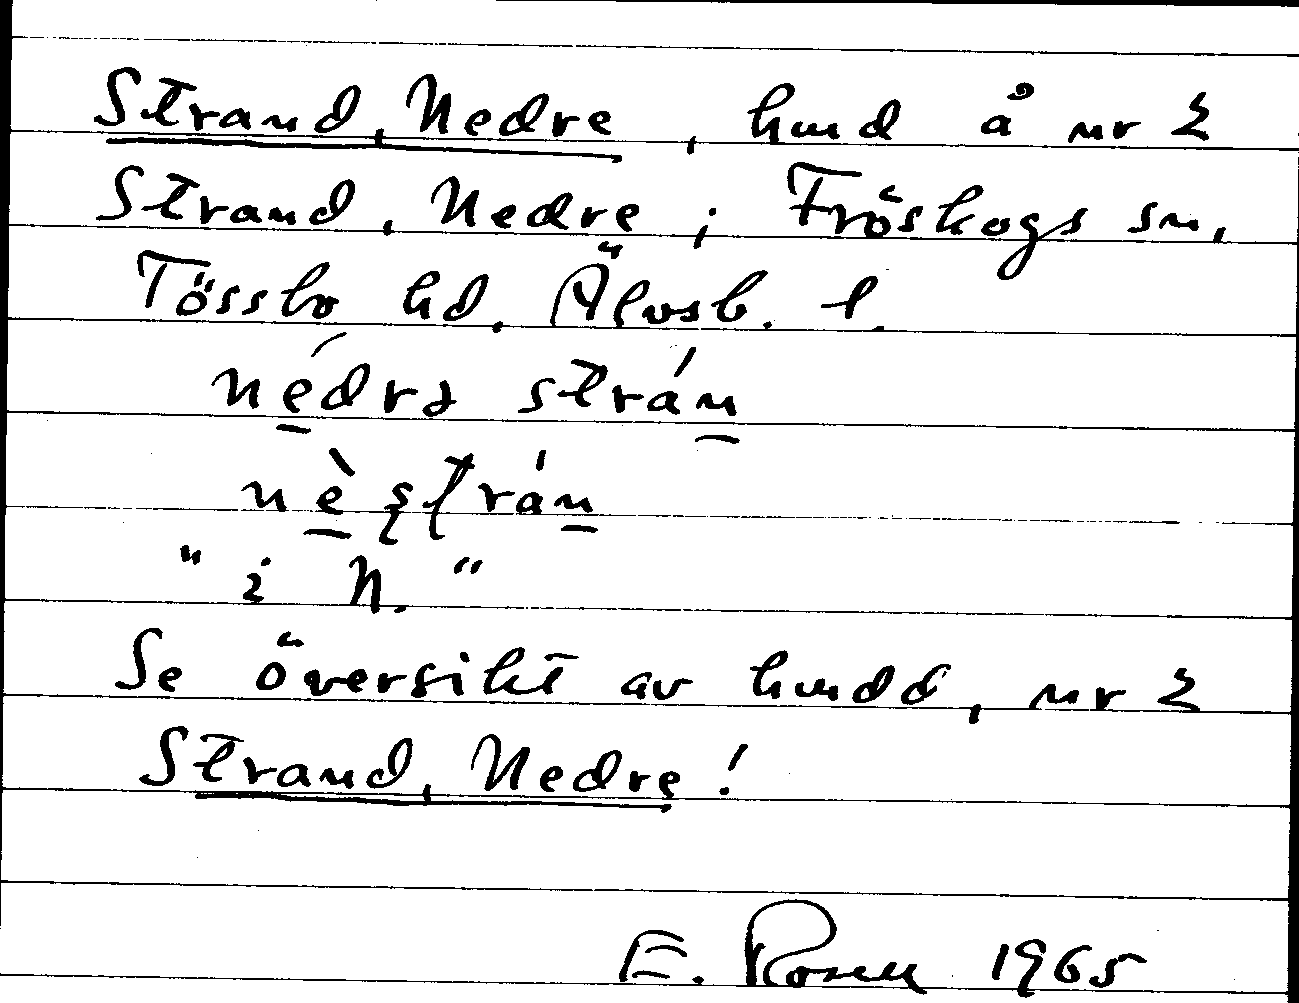 Strand, Nedre, hmd å nr 2
Strand, Nedre; Fröskogs sn,
Tössbo hd. Älvsb. l.
nédrə strán
nèʂʈrán
"i N."
Se översikt av hmdd, nr 2
Strand, Nedre!
E. Rosell 1965